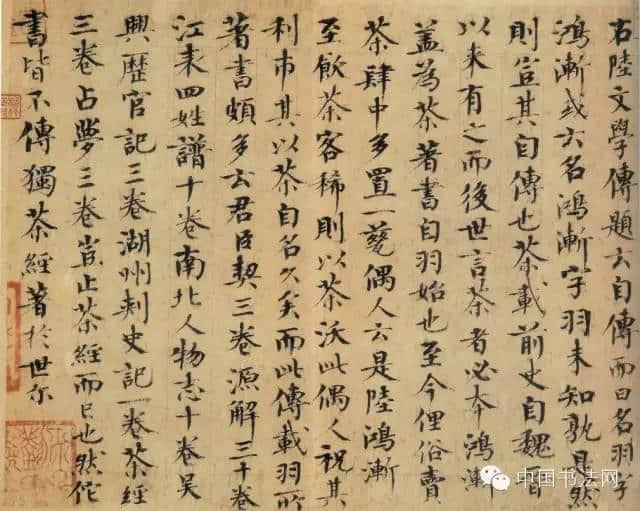 右陸文學傳題云自傳而曰名羽字
鴻漸或云名鴻漸字羽未知孰是然
則豈其自傳也茶載前史自魏晉
以来有之而後世言茶者必本鴻漸
盖為茶著書自羽始也至今俚俗賣
茶肆中多置一甆偶人云是陸鴻漸
至飲茶客稀則以茶沃此偶人祝其
利市其以茶自名久矣而此傳載羽所
著書頗多云君臣契三卷源解三十卷
江表四姓譜十卷南北人物志十卷吳
興歷官記三卷湖州刺史記一卷茶經
三卷占夢三卷豈止茶經而已也然佗
書皆不傳獨茶經著於世尔
中国书法网